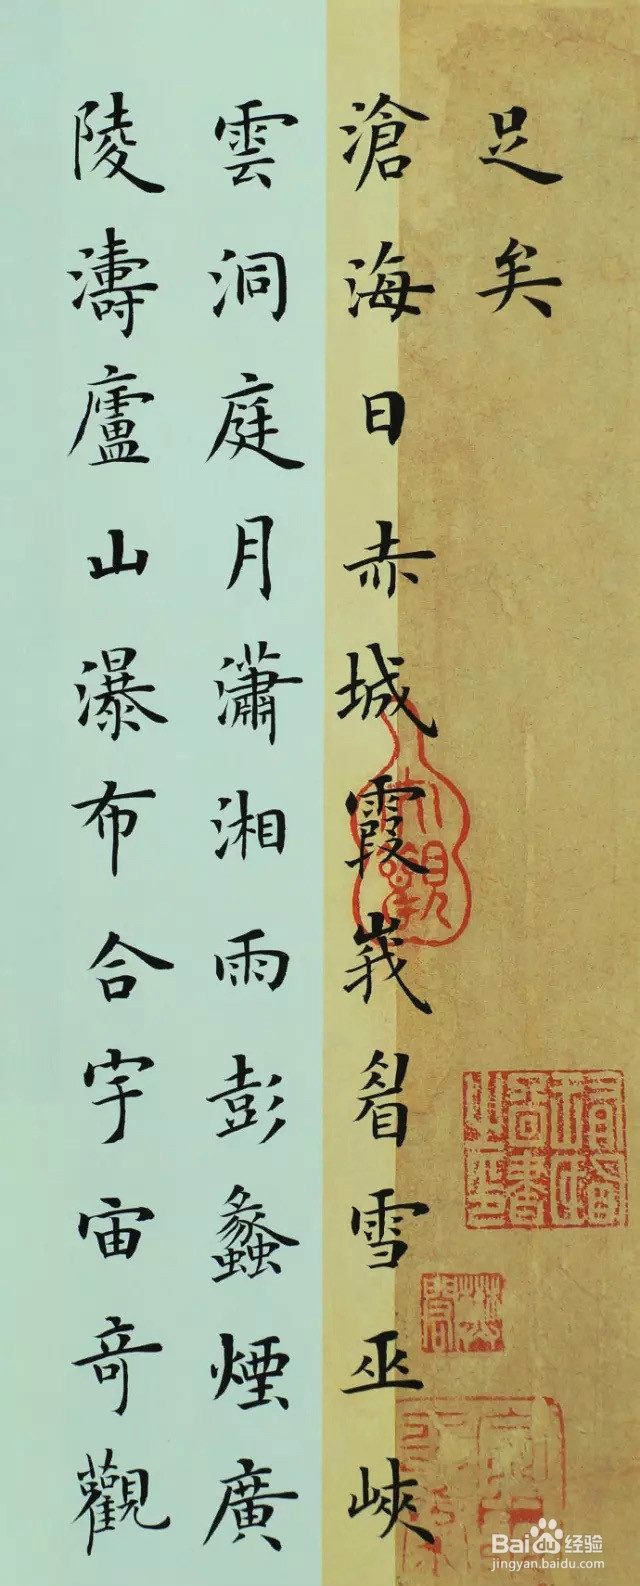 足矣
滄海日赤城霞峩眉雪巫峽
雲洞庭月瀟湘雨彭蠡煙廣
陵濤廬山瀑布合宇宙奇觀
Baidu经验
jingyan.baidu.com